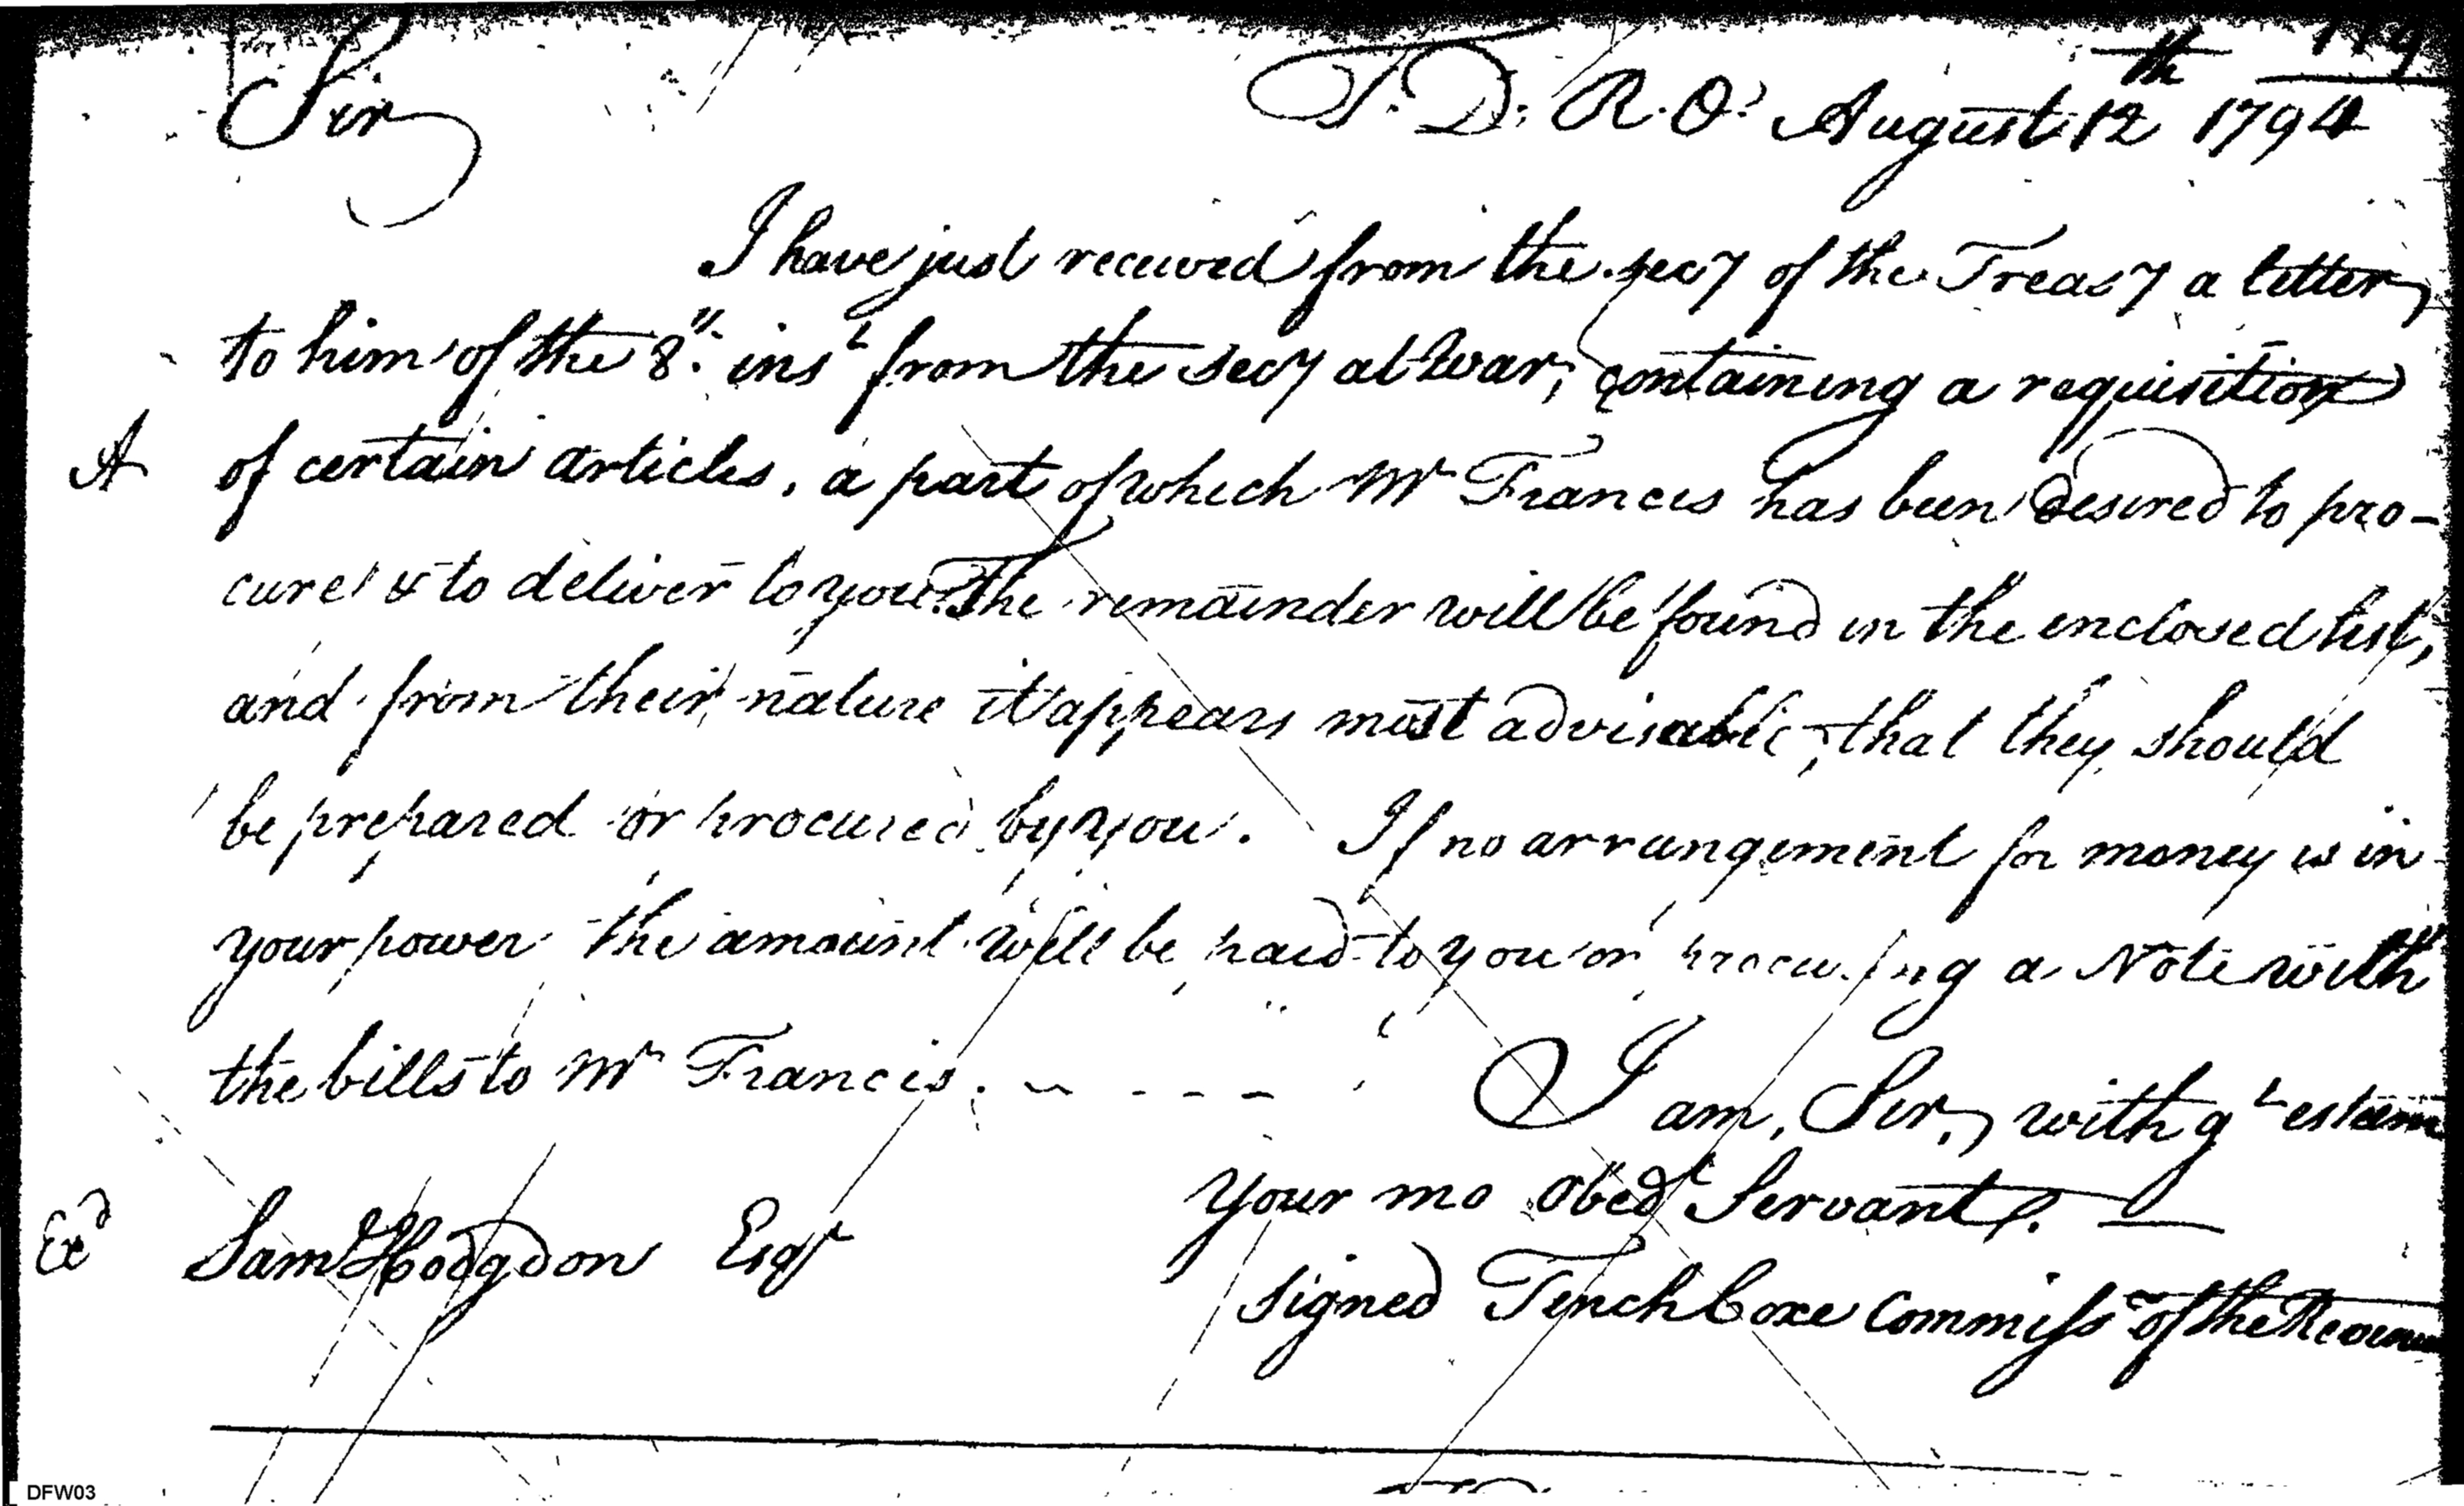 119
Sir T. D. R. O. August 12th 1794
I have just received from the secy of the Treasy a letter
to him of the 8th inst from the secy at War, containing a requisition
A of certain articles, a part of which Mr Francis has been desired to pro-
cure & to deliver to you. The remainder will be found in the enclosed list,
and from their nature it appears most advisable, that they should
be prepared or procured by you. If no arrangement for money is in
your power the amount will be paid to you on procuring a Note with
the bills to Mr Francis. - - - -
I am, Sir, with gt esteem
your mo obedt Servant. —
Exd Saml Hodgdon Esqr
signed Tench Coxe Commissr of the Revenue
DFW03